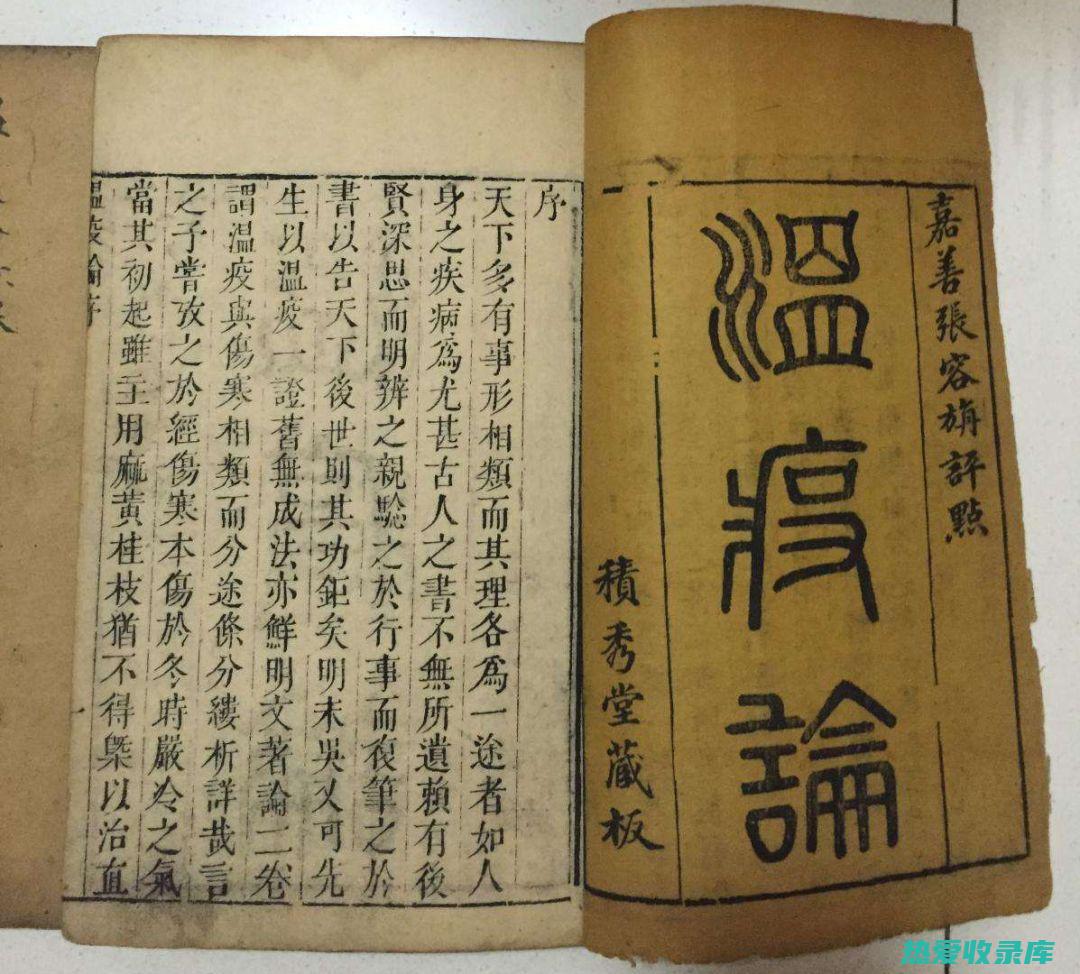 嘉善張容旃評點
溫疫論
積秀堂藏板
序
天下多有事形相類而其理各爲一途者如人
身之疾病爲尤甚古人之書不無所遺賴有後
賢深思而明辨之親驗之於行事而復筆之於
書以告天下後世則其功鉅矣明末吳又可先
生以溫疫一證舊無成法亦鮮明文著論二卷
謂溫疫與傷寒相類而分途條分縷析詳哉言
之予嘗攷之於經傷寒本傷於冬時嚴冷之氣
當其初起雖至用麻黃桂枝猶不得槩以治直
溫疫論序
热爱收录库